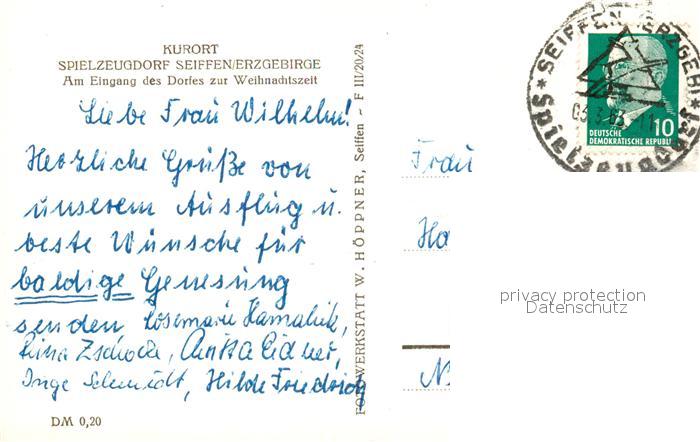 KURORT
SPIELZEUGDORF SEIFFEN/ERZGEBIRGE
Am Eingang des Dorfes zur Weihnachtszeit
Liebe Frau Wilhelm!
Herzliche Grüße von
unserem Ausflug u.
beste Wünsche für
baldige Genesung
senden Rosemarie
Zschocke, Anita
Inge Schmidt, Hilde Friedrich
DM 0,20
FOTOWERKSTATT W. HÖPPNER, Seiffen - F III/20/24
Frau
Ha
N
SEIFFEN ERZGEB
03.3.63-11
DEUTSCHE
DEMOKRATISCHE REPUBLIK
10
privacy protection
Datenschutz